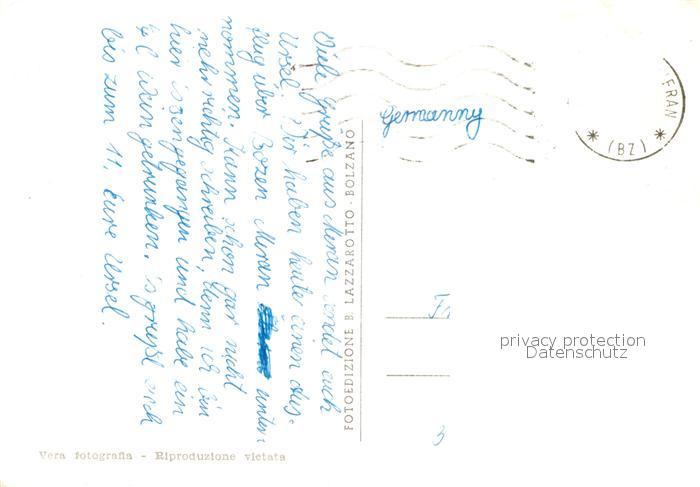 Viele Grüße aus Meran sendet euch
Ursel. Wir haben heute einen Aus-
flug über Bozen Meran unter
nommen. Kann schon gar nicht
mehr richtig schreiben, denn ich bin
hier ausgegangen und habe ein
4l Wein getrunken. grüßt euch
bis zum 11. Eure Ursel.
Germanny
Fr
3
FRAN
* (BZ) *
FOTOEDIZIONE B. LAZZAROTTO - BOLZANO
privacy protection
Datenschutz
Vera fotografia - Riproduzione vietata